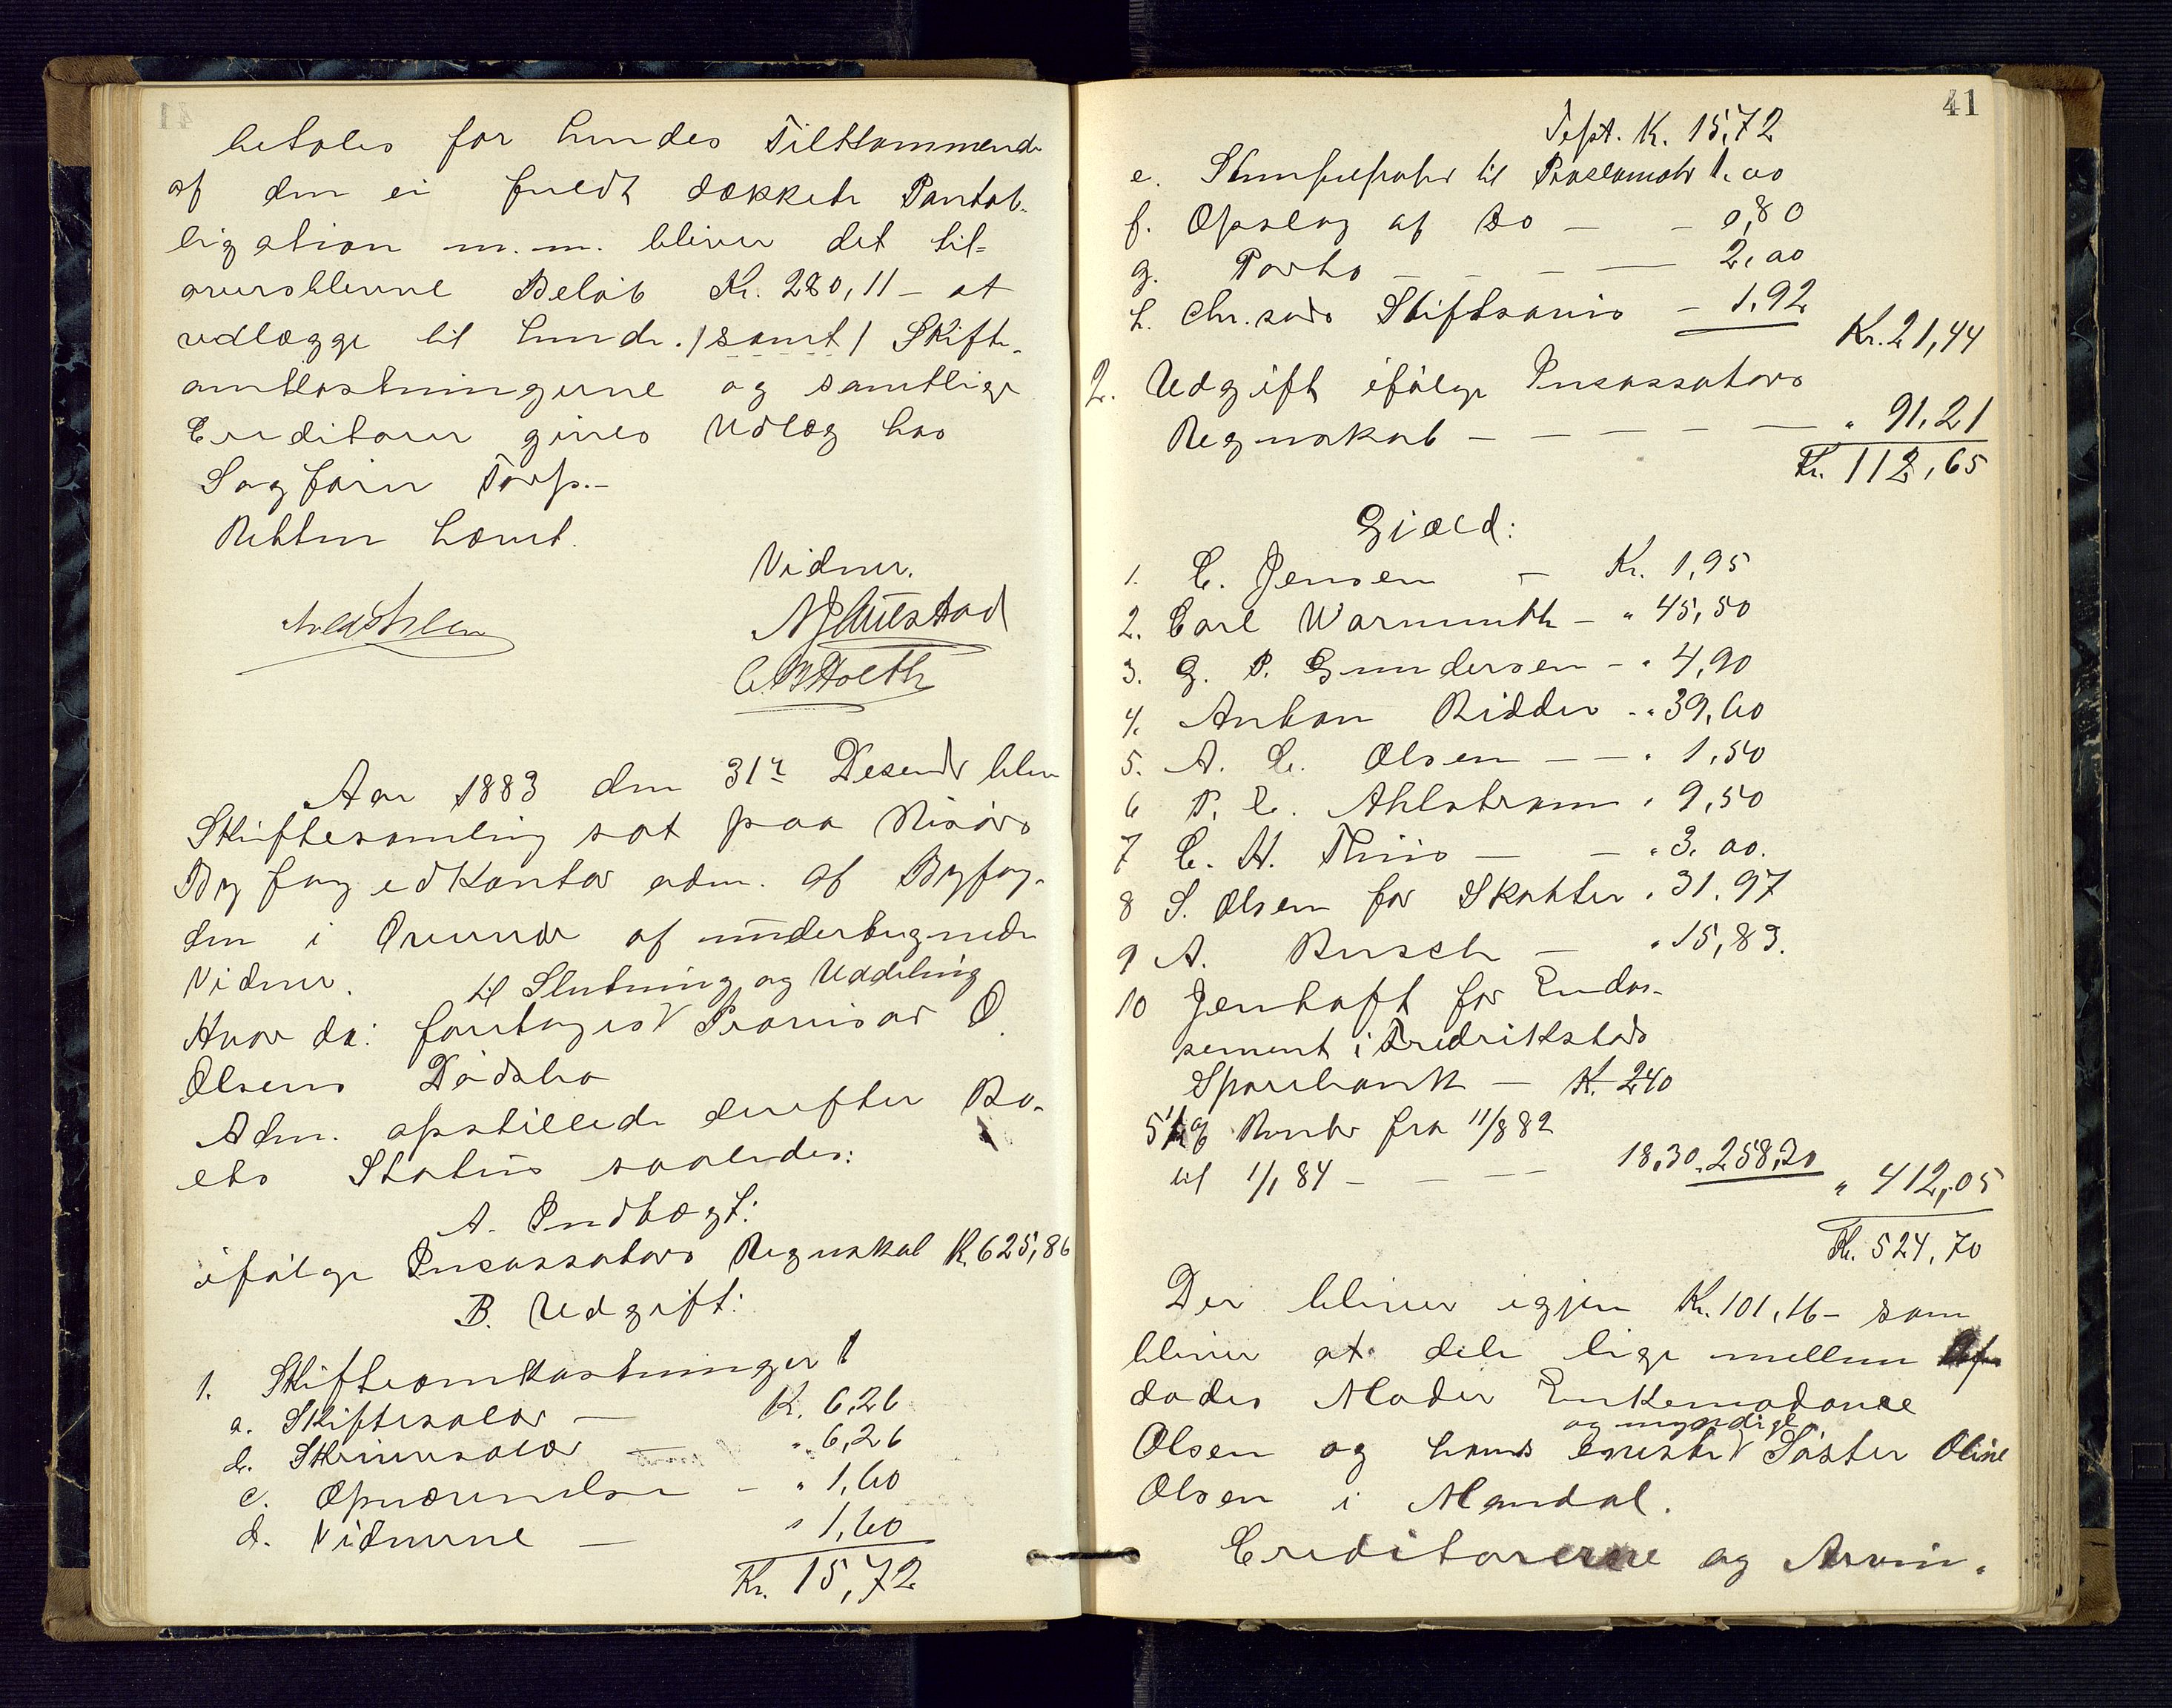 betales for hendes Tilkommende
af den ei fuldt dækkede Pantob-
ligation m. m. bliver det til-
oversblevne Beløb Kr. 280,11 - at
udlægge til hende. / samt / Skifte-
omkostningerne og samtlige
Creditorer gives Udlæg hos
Sagfører Torp.-
Retten hævet.
Vidner.
C B Holth
Aar 1883 den 31te Desembr blev
Skiftesamling sat paa Risørs
Byfogedkontor adm. af Byfog-
den i Overvær af undertegnede
Vidner.
til Slutning og Uddeling
Hvor da: foretoges Provisor O.
Olsens Dødsbo
Adm. opstillede derefter Bo-
ets Status saaledes:
A. Indtægt:
ifølge Incassators Regnskab K. 625,86
B. Udgift:
1. Skifteomkostninger
a. Skiftesalær — K. 6,26
b. Skriversalær — " 6,26
c. Opnævnelse - " 1,60
d. Vidnerne — " 1,60
Kr. 15,72
41
Tspt. K. 15,72
e. Stempelpapir til Proclamaet 1.00
f. Opslag af Do — - 0,80
g. Porto - - - — 2,00
h. Chr.sads Stiftsavis - 1,92
Kr. 21,44
2. Udgift ifølge Incassators
Regnskab - - - - - — " 91,21
Kr. 112,65
Gjæld:
1. C. Jensen - Kr. 1,95
2. Carl Warmuth - " 45,50
3. G. P. Gundersen - " 4,90
4. Anton Ridder - " 39,60
5. A. C. Olsen - - " 1,50
6 P. C. Ahlstrøm " 9,50
7 C. H. Thiis — - " 3.00.
8 S. Olsen for Skatter " 31.97
9 A. Busch — " 15,83.
10 Jenhoft for Endos-
sement i Fredrikstads
Sparebank — K. 240
5½% Renter fra 11/8 82
til 1/1 84 - - — 18,30. 258,30
" 412,05
Kr. 524,70
Der bliver igjen Kr. 101,16 - som
bliver at dele lige mellem Af-
dødes Moder Enkemadame
og myndige
Olsen og hans eneste Søster Oline
Olsen i Mandal.
Creditorerne og Arvin-